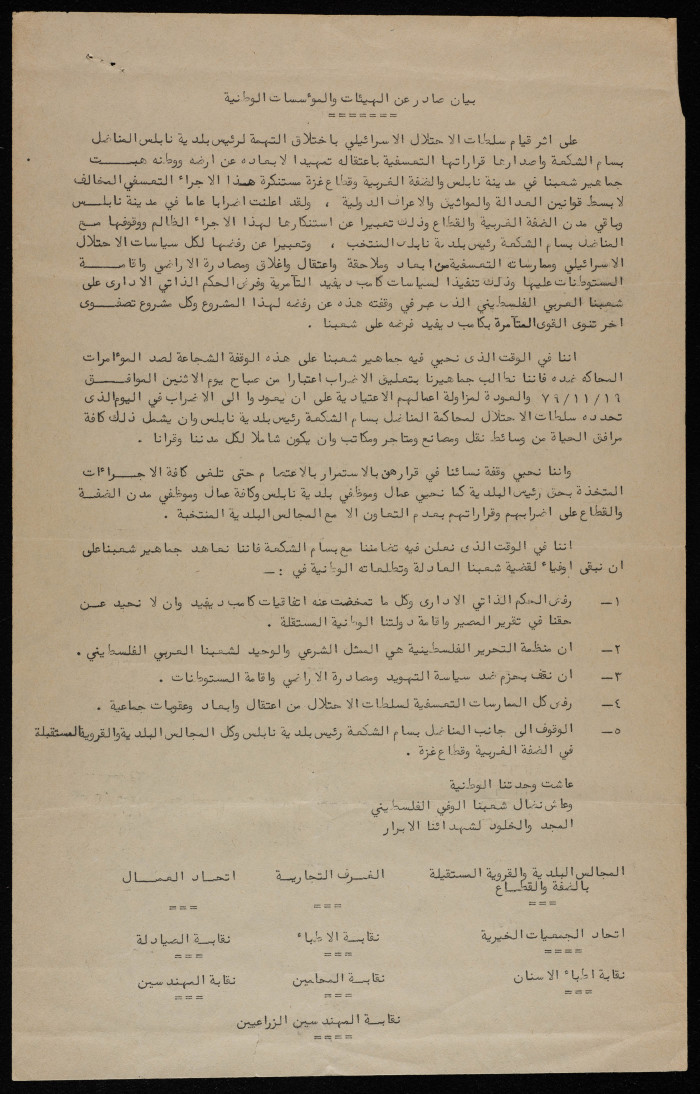 بيان صادر عن الهيئات والمؤسسات الوطنية
=======
على اثر قيام سلطات الاحتلال الاسرائيلي باختلاق التهمة لرئيس بلدية نابلس المناضل
بسام الشكعة واصدارها قراراتها التعسفية باعتقاله تمهيدا لابعاده عن ارضه ووطنه هبت
جماهير شعبنا في مدينة نابلس والضفة الغربية وقطاع غزة مستنكرة هذا الاجراء التعسفي المخالف
لابسط قوانين العدالة والمواثيق والاعراف الدولية ، ولقد اعلنت اضرابا عاما في مدينة نابلس
وباقي مدن الضفة الغربية والقطاع وذلك تعبيرا عن استنكارها لهذا الاجراء الظالم ووقوفها مع
المناضل بسام الشكعة رئيس بلدية نابلس المنتخب ، وتعبيرا عن رفضها لكل سياسات الاحتلال
الاسرائيلي وممارساته التعسفية من ابعاد وملاحقة واعتقال واغلاق ومصادرة الاراضي واقامة
المستوطنات عليها وذلك تنفيذا لسياسات كامب ديفيد التآمرية وفرض الحكم الذاتي الادارى على
شعبنا العربي الفلسطيني الذى عبر في وقفته هذه عن رفضه لهذا المشروع وكل مشروع تصفوى
اخر تنوى القوى المتآمرة بكامب ديفيد فرضه على شعبنا .
اننا في الوقت الذى نحيي فيه جماهير شعبنا على هذه الوقفة الشجاعة لصد المؤامرات
المحاكه ضده فاننا نطالب جماهيرنا بتعليق الاضراب اعتبارا من صباح يوم الاثنين الموافق
٧٩/١١/١٩ والعودة لمزاولة اعمالهم الاعتيادية على ان يعودوا الى الاضراب في اليوم الذى
تحدده سلطات الاحتلال لمحاكمة المناضل بسام الشكعة رئيس بلدية نابلس وان يشمل ذلك كافة
مرافق الحياة من وسائط نقل ومصانع ومتاجر ومكاتب وان يكون شاملا لكل مدننا وقرانا .
واننا نحيي وقفة نسائنا في قرارهن بالاستمرار بالاعتصام حتى تلغى كافة الاجراءات
المتخذة بحق رئيس البلدية كما نحيي عمال وموظفي بلدية نابلس وكافة عمال وموظفي مدن الضفة
والقطاع على اضرابهم وقراراتهم بعدم التعاون الا مع المجالس البلدية المنتخبة .
اننا في الوقت الذى نعلن فيه تضامننا مع بسام الشكعة فاننا نعاهد جماهير شعبنا على
ان نبقى اوفياء لقضية شعبنا العادلة وتطلعاته الوطنية في :ـ
١ـ رفض الحكم الذاتي الادارى وكل ما تمخضت عنه اتفاقيات كامب ديفيد وان لا نحيد عن
حقنا في تقرير المصير واقامة دولتنا الوطنية المستقلة .
٢ـ ان منظمة التحرير الفلسطينية هي الممثل الشرعي والوحيد لشعبنا العربي الفلسطيني .
٣ـ ان نقف بحزم ضد سياسة التهويد ومصادرة الاراضي واقامة المستوطنات .
٤ـ رفض كل الممارسات التعسفية لسلطات الاحتلال من اعتقال وابعاد وعقوبات جماعية .
٥ـ الوقوف الى جانب المناضل بسام الشكعة رئيس بلدية نابلس وكل المجالس البلدية والقروية المستقيلة
في الضفة الغربية وقطاع غزة .
عاشت وحدتنا الوطنية
وعاش نضال شعبنا الوفي الفلسطيني
المجد والخلود لشهدائنا الابرار
المجالس البلدية والقروية المستقيلة الغرف التجارية اتحاد العمال
بالضفة والقطاع
=== === ===
اتحاد الجمعيات الخيرية نقابة الاطباء نقابة الصيادلة
==== === ===
نقابة اطباء الاسنان نقابة المحامين نقابة المهندسين
=== === ===
نقابة المهندسين الزراعيين
====